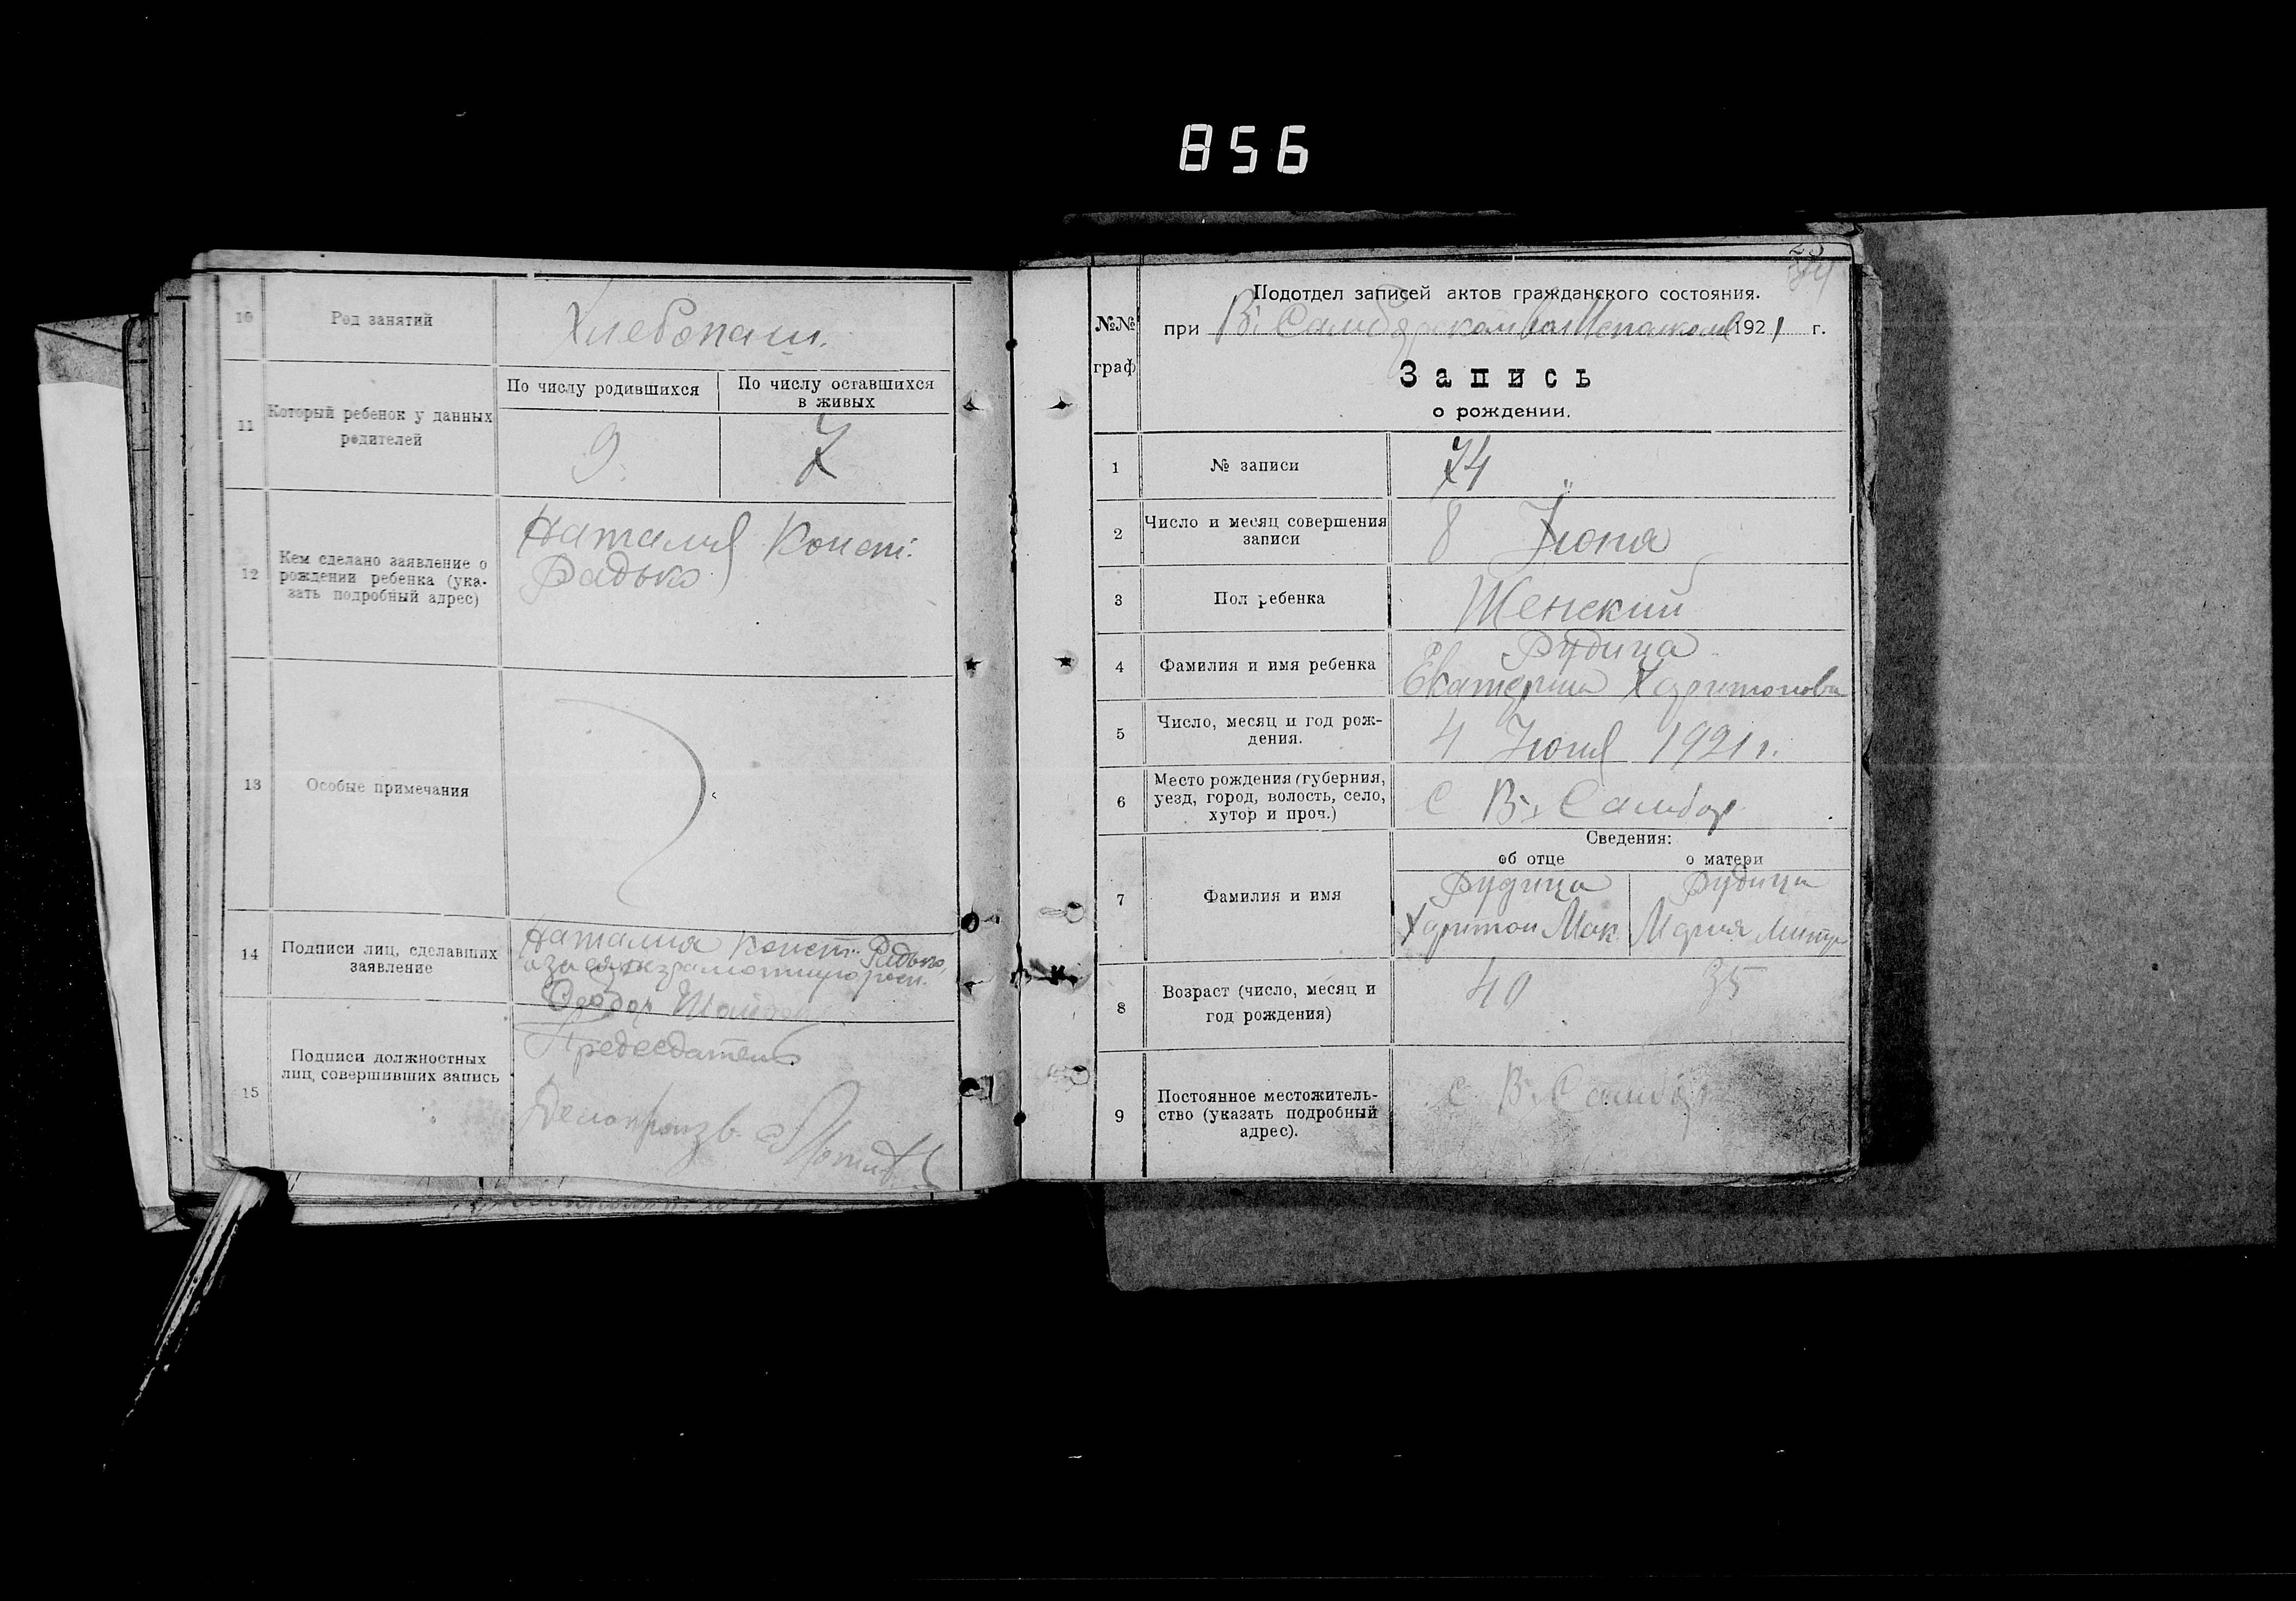 856
10
Род занятий
Хлебопаш.
11
Который ребенок у данных
родителей
По числу родившихся
По числу оставшихся
в живых
9
7
12
Кем сделано заявление о
рождении ребенка (ука-
зать подробный адрес)
Наталия Конст.
Радько
13
Особые примечания
14
Подписи лиц, сделавших
заявление
Наталия Конст. Радько,
Федор
15
Подписи должностных
лиц, совершивших запись
Председатель
Делопроизв.
74
№№
граф
Подотдел записей актов гражданского состояния.
при В. Самборском 1921 г.
Запись
о рождении.
1
№ записи
74
2
Число и месяц совершения
записи
8 Июня
3
Пол ребенка
Женский
4
Фамилия и имя ребенка
Рудица
Екатерина Харитонова
5
Число, месяц и год рож-
дения.
4 1921 г.
6
Место рождения (губерния,
уезд, город, волость, село,
хутор и проч.)
С В. Самбор
Сведения:
об отце
о матери
7
Фамилия и имя
Рудица
Харитон Мак.
Рудица
Мария
8
Возраст (число, месяц и
год рождения)
40
35
9
Постоянное местожитель-
ство (указать подробный
адрес).
с В. Самбор